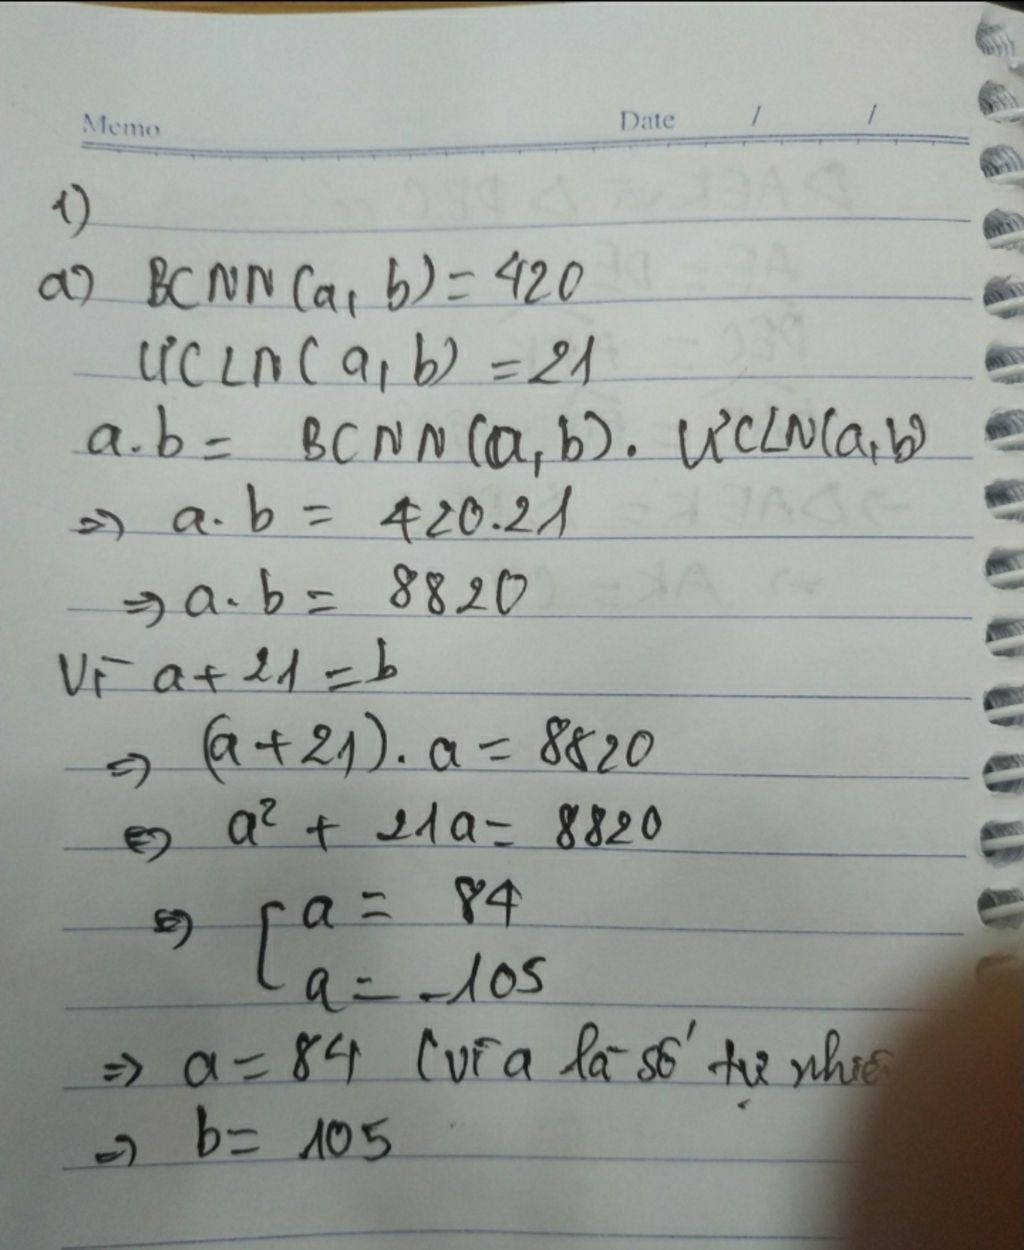 Memo Date / /
1)
a) BCNN(a, b) = 420
ƯCLN(a, b) = 21
a.b = BCNN(a, b). ƯCLN(a,b)
=> a.b = 420.21
=> a.b = 8820
Vì a + 21 = b
=> (a + 21).a = 8820
<=> a² + 21a = 8820
<=> [ a = 84
a = -105
=> a = 84 (vì a là số tự
=> b = 105